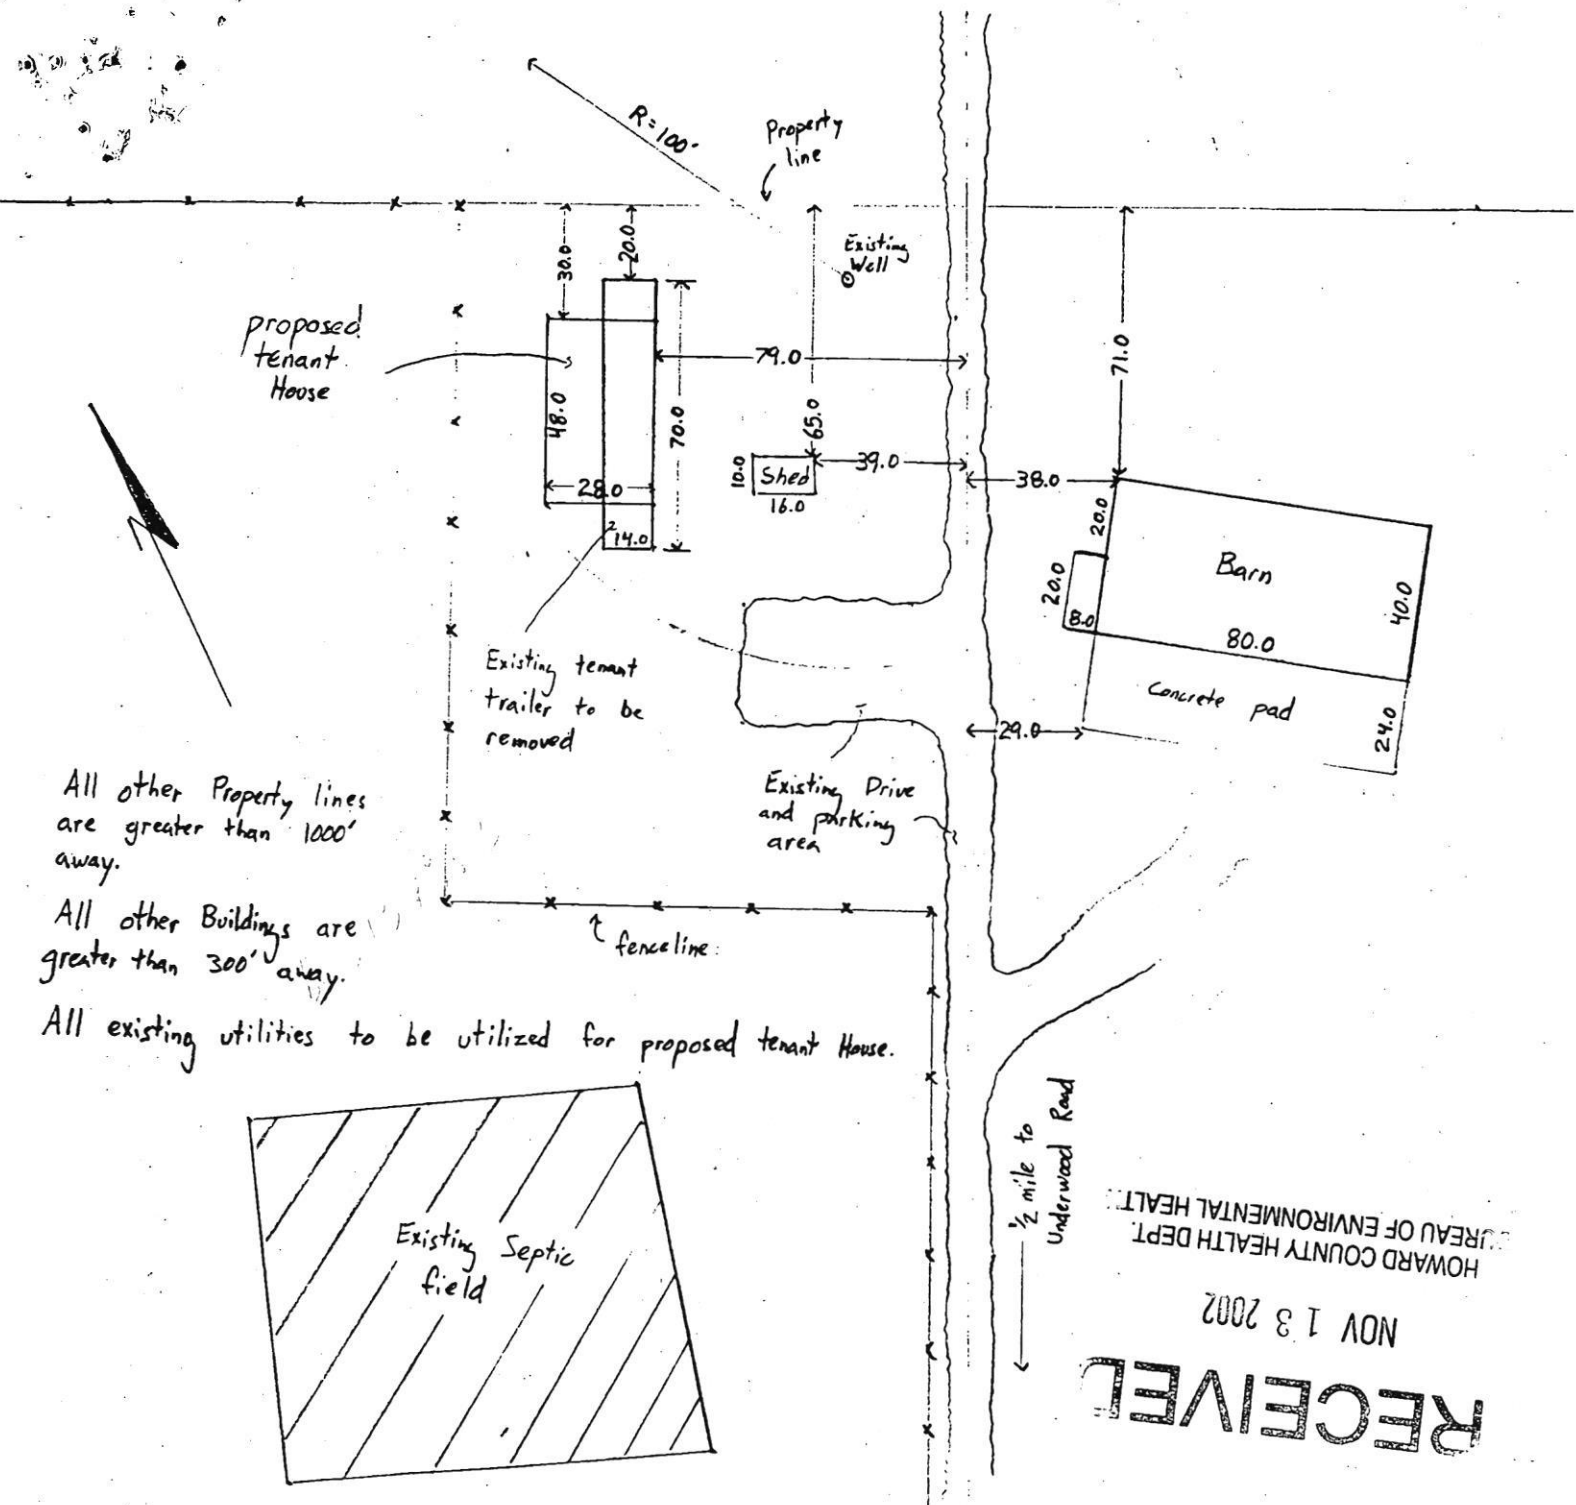 R=100'
Property
line
30.0
20.0
Existing
Well
proposed
tenant
House
79.0
71.0
48.0
70.0
65.0
10.0
Shed
16.0
39.0
38.0
28.0
14.0
20.0
Barn
20.0
8.0
40.0
80.0
Existing tenant
trailer to be
removed
Concrete pad
29.0
24.0
Existing Drive
and parking
area
All other Property lines
are greater than 1000'
away.
All other Buildings are
greater than 300' away.
fenceline
All existing utilities to be utilized for proposed tenant House.
1/2 mile to
Underwood Road
Existing Septic
field
RECEIVED
NOV 13 2002
HOWARD COUNTY HEALTH DEPT.
BUREAU OF ENVIRONMENTAL HEALT